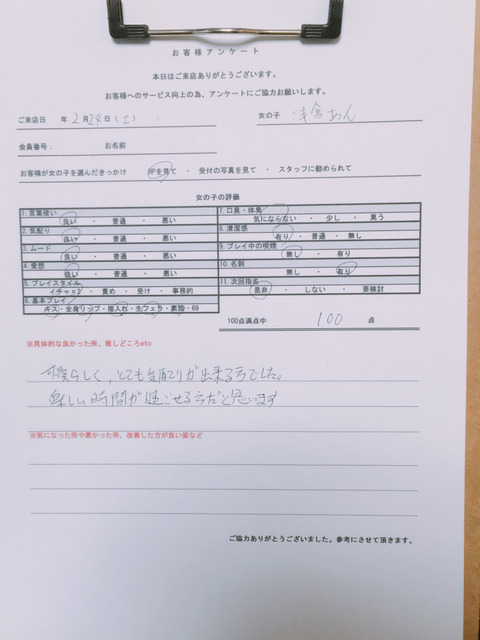 お客様アンケート
本日はご来店ありがとうございます。
お客様へのサービス向上の為、アンケートにご協力お願いします。
ご来店日 年 2月24日(土) : 女の子 浅倉あん
会員番号: お名前
お客様が女の子を選んだきっかけ HPを見て ・ 受付の写真を見て ・ スタッフに勧められて
女の子の評価
1. 言葉使い
良い ・ 普通 ・ 悪い
2. 気配り
良い ・ 普通 ・ 悪い
3. ムード
良い ・ 普通 ・ 悪い
4. 愛想
良い ・ 普通 ・ 悪い
5. プレイスタイル
イチャ×2 ・ 責め ・ 受け ・ 事務的
6. 基本プレイ
キス・全身リップ・指入れ・生フェラ・素股・69
7. 口臭・体臭
気にならない ・ 少し ・ 臭う
8. 清潔感
有り ・ 普通 ・ 無し
9. プレイ中の喫煙
無し ・ 有り
10. 名刺
無し ・ 有り
11. 次回指名
是非 ・ しない ・ 要検討
100点満点中 100 点
※具体的な良かった所、推しどころetc
可愛らしく、とても気配りが出来る方でした。
楽しい時間が過ごせる方だと思います
※気になった所や悪かった所、改善した方が良い面など
ご協力ありがとうございました。参考にさせて頂きます。